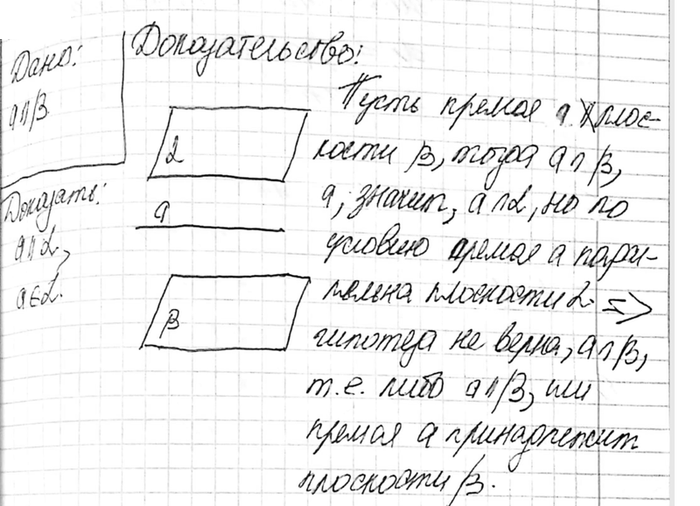 Дано:
a∩β
Доказать:
a∩α,
a∈α.
Доказательство:
α
a
β
Пусть прямая a ∦ плос-
кости β, тогда a∩β,
а, значит, a∩α, но по
условию прямая a парал-
лельна плоскости α =>
гипотеза не верна, a∩β,
т.е. либо a∩β, или
прямая a принадлежит
плоскости β.